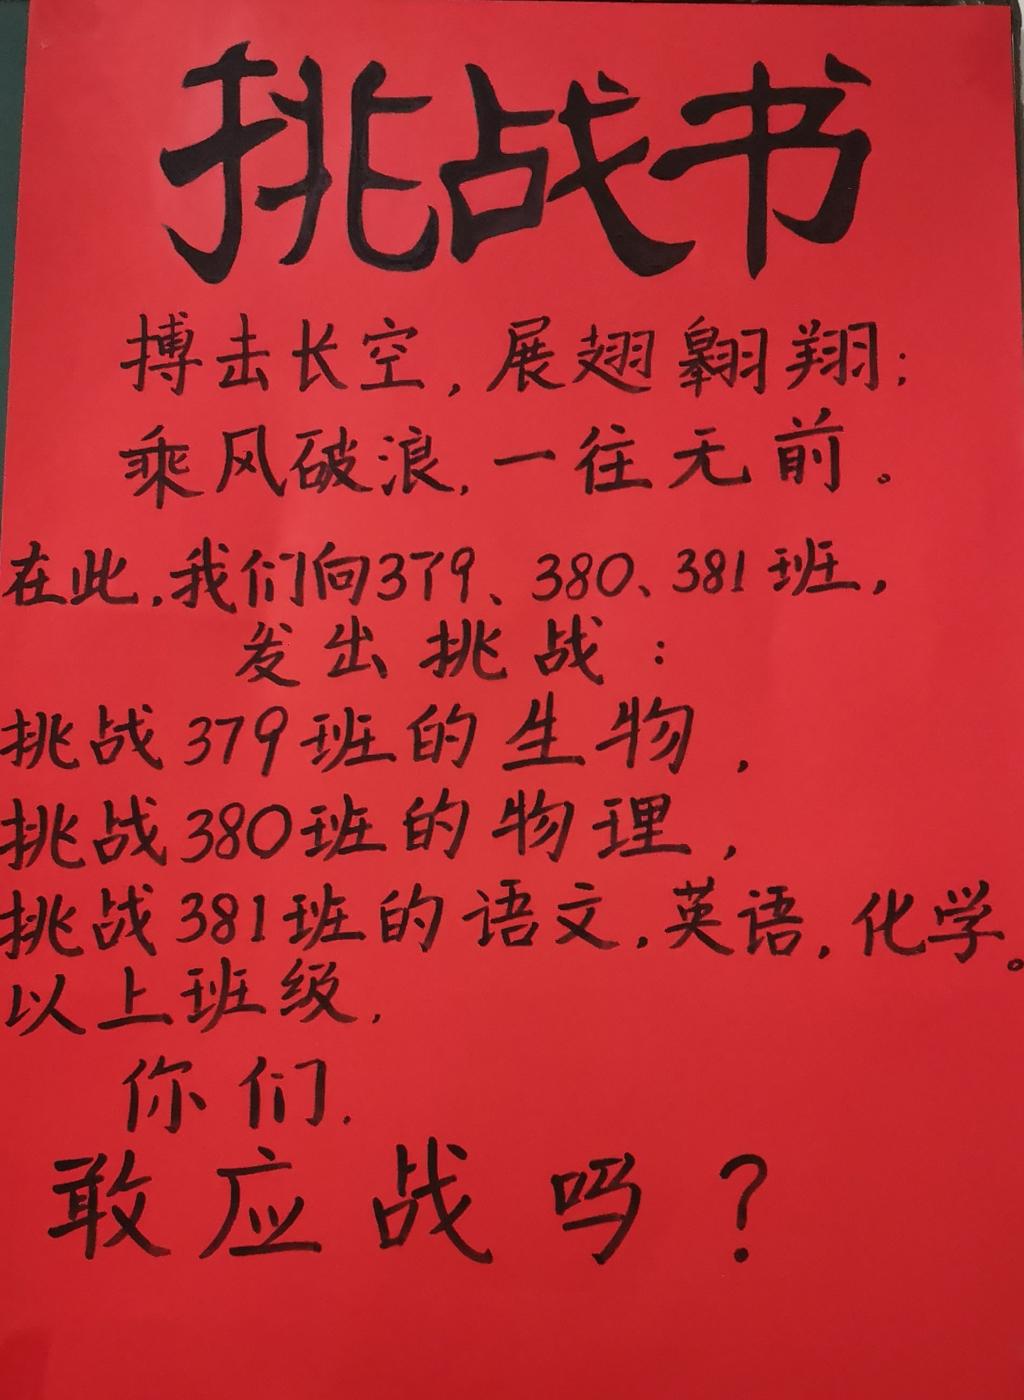 挑战书
搏击长空，展翅翱翔；
乘风破浪，一往无前。
在此，我们向379、380、381班，
发出挑战：
挑战379班的生物，
挑战380班的物理，
挑战381班的语文，英语，化学。
以上班级，
你们，
敢应战吗？